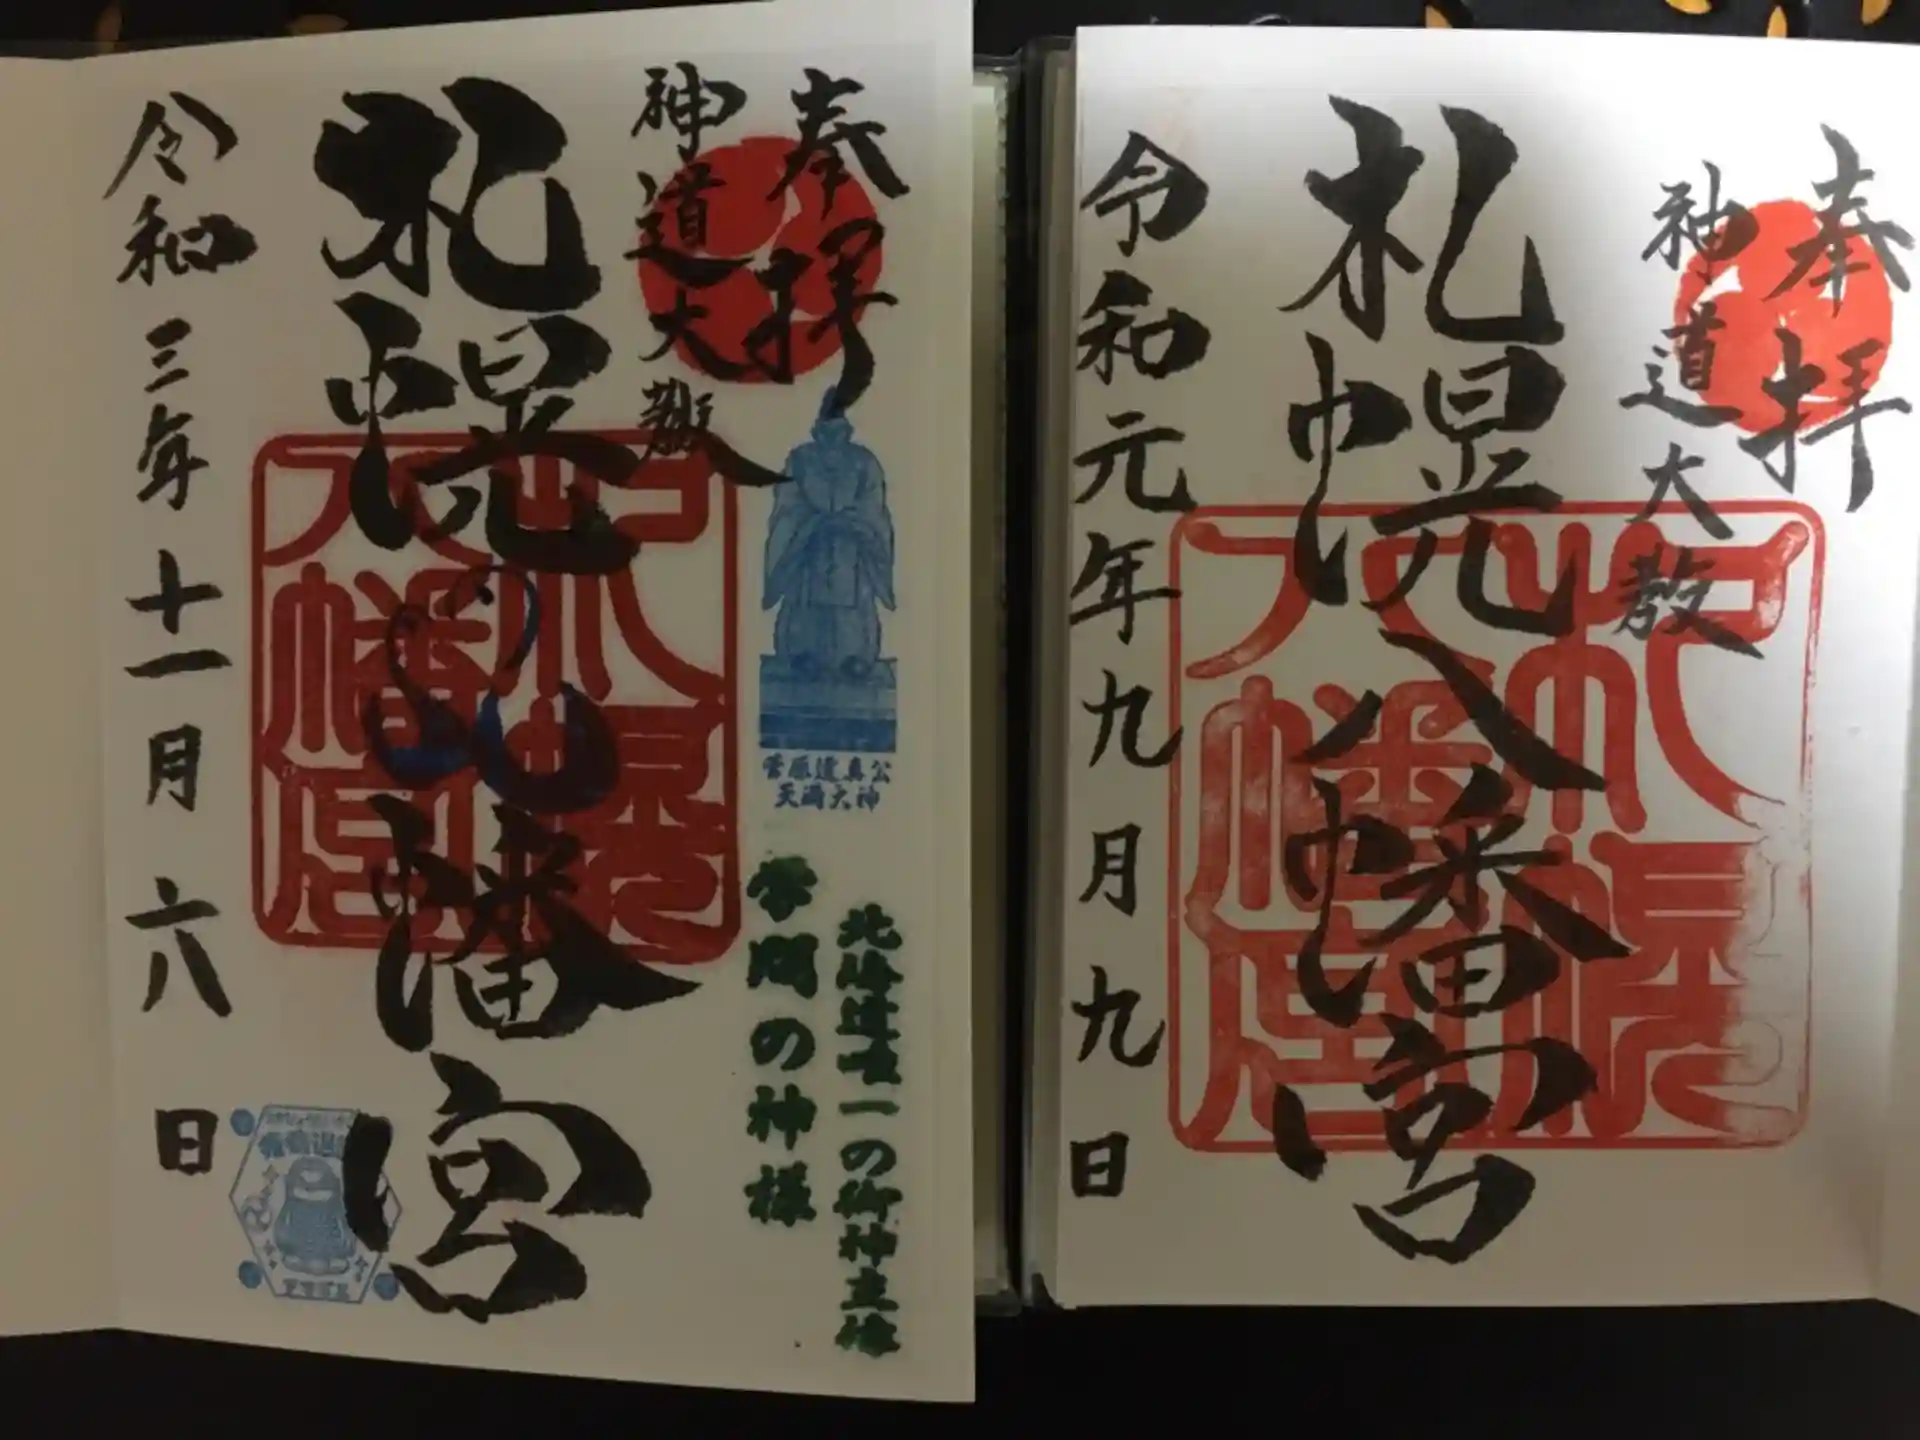 奉拝
神道大教
札幌八幡宮
令和三年十一月六日
菅原道真公
天満大神
北海道唯一の御神立像
学問の神様
札幌
八幡宮
奉拝
神道大教
札幌八幡宮
令和元年九月九日
札幌
八幡宮